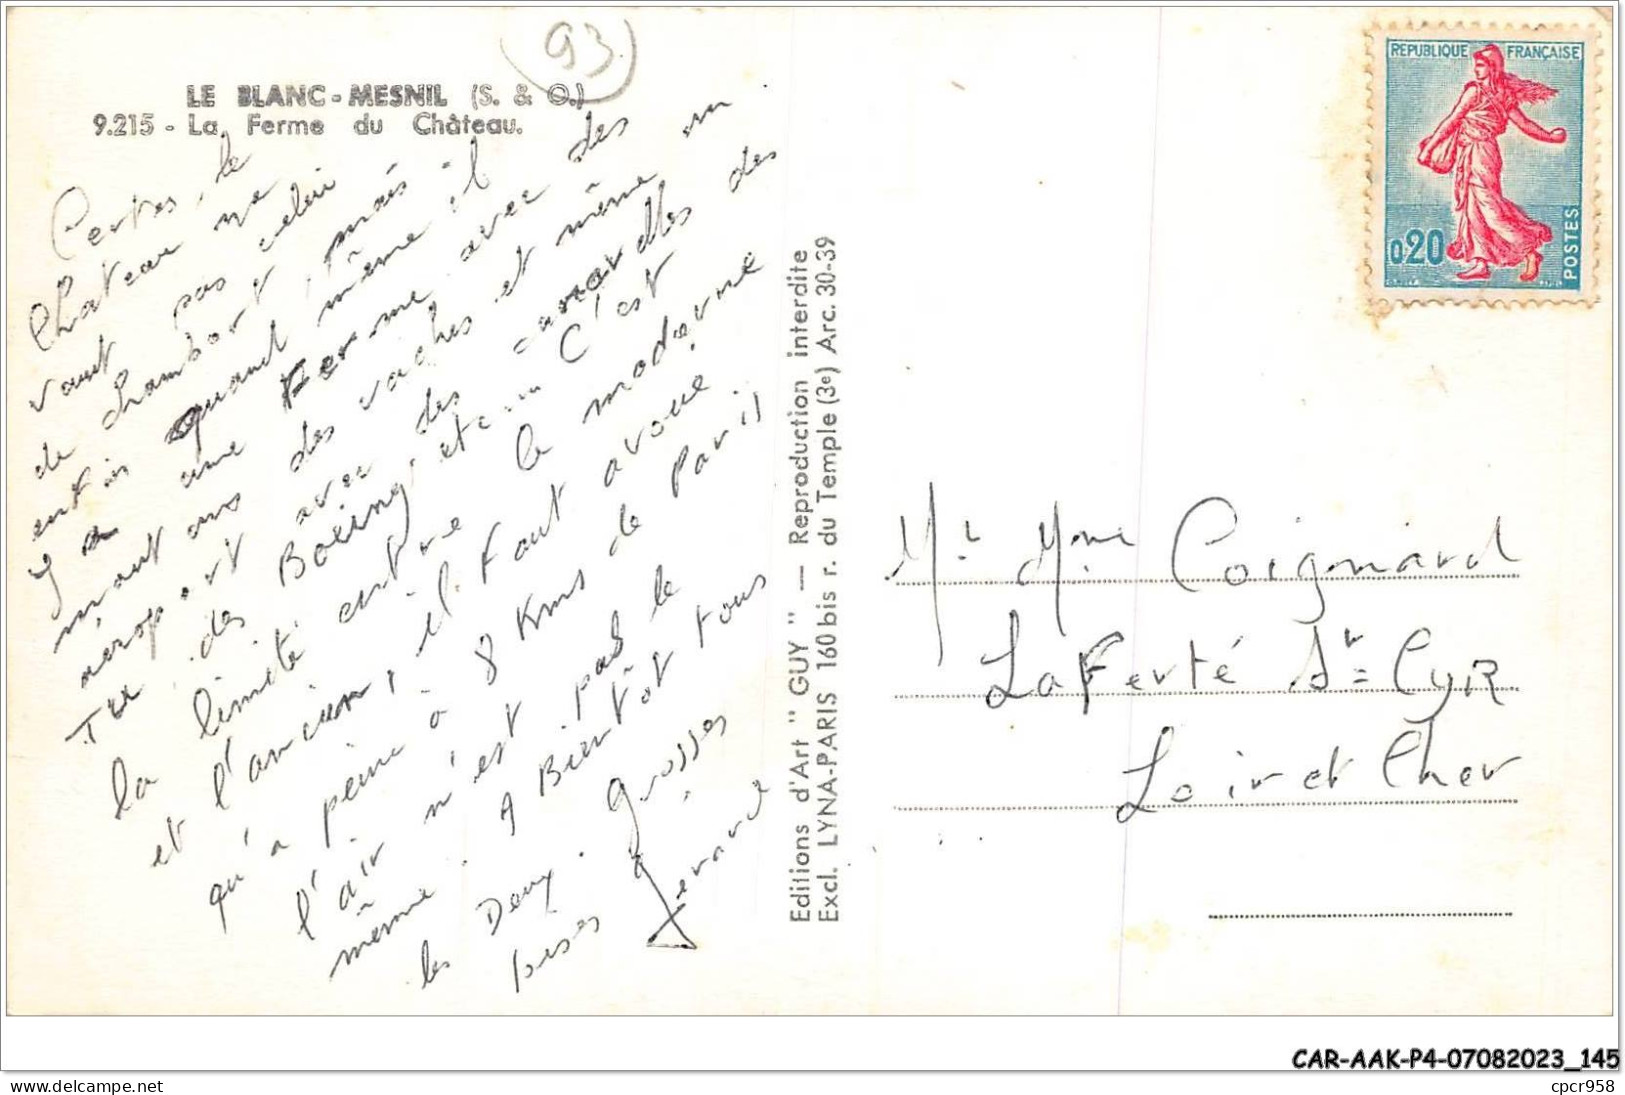 93
LE BLANC-MESNIL (S. & O.)
9.215 - La Ferme du Château.
Certes, le
Chateau ne
vaut pas celui
de Chambort, mais
enfin quand même il
y a une Ferme avec des
des vaches et même un
aéroport avec des caravelles des
des Boeing, etc... C'est
la limite entre le moderne
et l'ancien, il faut avoué
qu'a peine à 8 Kms de Paris
l'air n'est pas le
même. A Bientôt tous
les Deux. grosses
bises
Bernard
Editions d'Art " GUY " — Reproduction interdite
Excl. LYNA-PARIS 160 bis r. du Temple (3e) Arc. 30-39
REPUBLIQUE FRANÇAISE
0,20
POSTES
Mr Mme Coignard
La Ferté St Cyr
Loir et Cher
CAR-AAK-P4-07082023_145
cpcr958